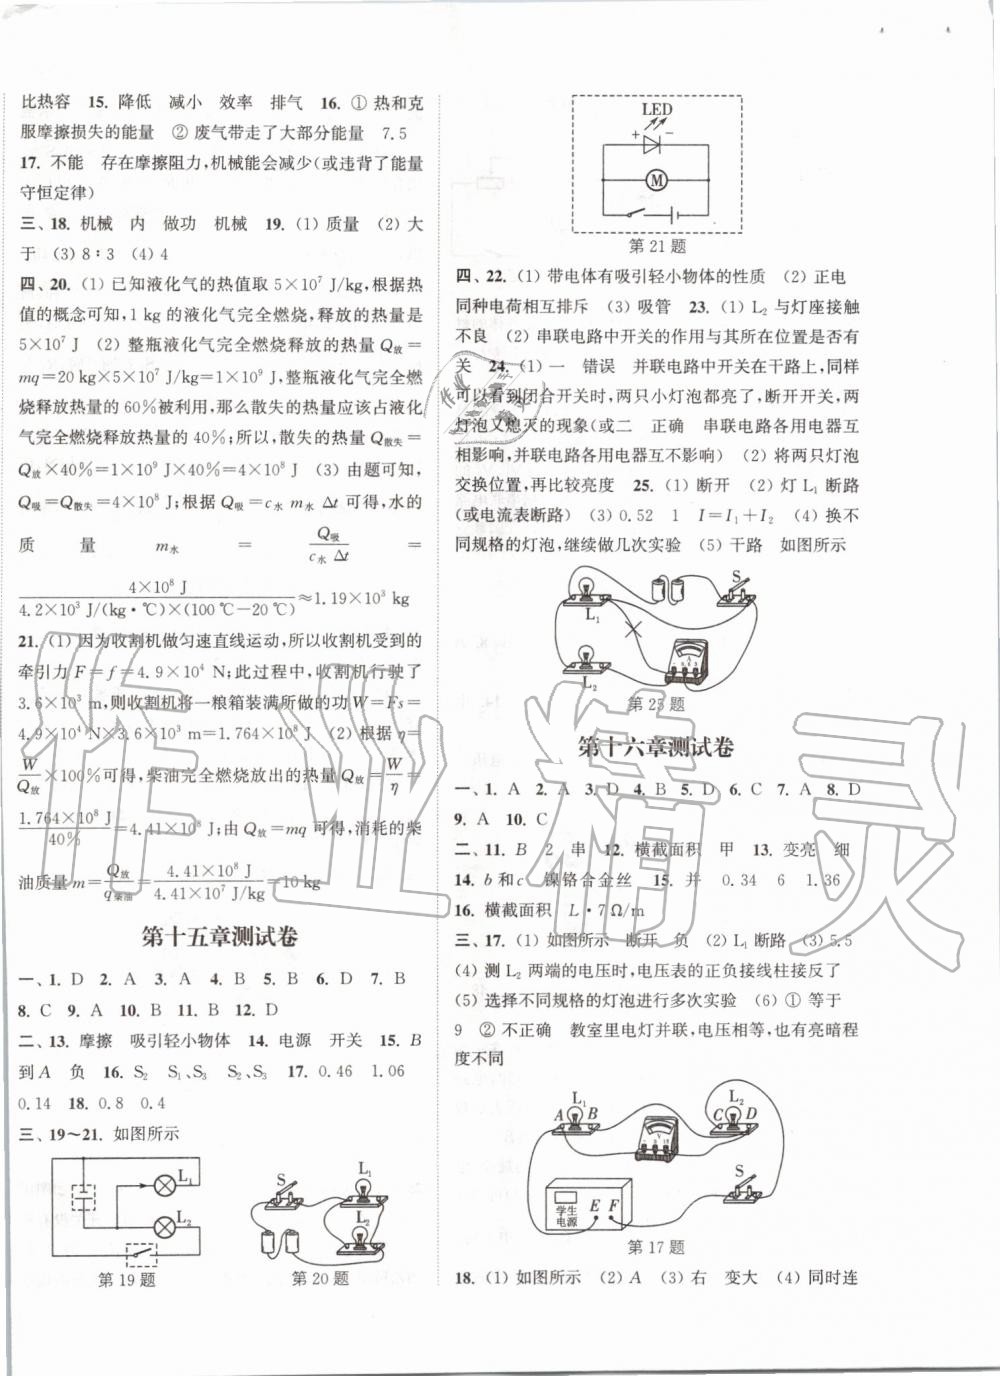 比热容 15. 降低 减小 效率 排气 16. ① 热和克
服摩擦损失的能量 ② 废气带走了大部分能量 7.5
17. 不能 存在摩擦阻力,机械能会减少(或违背了能量
守恒定律)
三、18. 机械 内 做功 机械 19. (1) 质量 (2) 大
于 (3) 8∶3 (4) 4
四、20. (1) 已知液化气的热值取 5×10⁷ J/kg,根据热
值的概念可知,1 kg 的液化气完全燃烧,释放的热量是
5×10⁷ J (2) 整瓶液化气完全燃烧释放的热量 Q放=
mq=20 kg×5×10⁷ J/kg=1×10⁹ J,整瓶液化气完全燃
烧释放热量的 60%被利用,那么散失的热量应该占液化
气完全燃烧释放热量的 40%;所以,散失的热量 Q散失=
Q放×40%=1×10⁹ J×40%=4×10⁸ J (3) 由题可知,
Q吸=Q散失=4×10⁸ J;根据 Q吸=c水 m水 Δt 可得,水的
质量 m水 = Q吸/(c水 Δt) =
4×10⁸ J/(4.2×10³ J/(kg·℃)×(100 ℃-20 ℃))≈1.19×10³ kg
21. (1) 因为收割机做匀速直线运动,所以收割机受到的
牵引力 F=f=4.9×10⁴ N;此过程中,收割机行驶了
3.6×10³ m,则收割机将一粮箱装满所做的功 W=Fs=
4.9×10⁴ N×3.6×10³ m=1.764×10⁸ J (2) 根据 η=
W/Q放×100%可得,柴油完全燃烧放出的热量 Q放=W/η=
1.764×10⁸ J/40%=4.41×10⁸ J;由 Q放=mq 可得,消耗的柴
油质量 m=Q放/q柴油=4.41×10⁸ J/4.41×10⁷ J/kg=10 kg
第十五章测试卷
一、1. D 2. A 3. A 4. B 5. B 6. D 7. B
8. C 9. A 10. B 11. B 12. D
二、13. 摩擦 吸引轻小物体 14. 电源 开关 15. B
到 A 负 16. S₂ S₁、S₃ S₂、S₃ 17. 0.46 1.06
0.14 18. 0.8 0.4
三、19~21. 如图所示
L₁
L₂
第 19 题
S
L₁
L₂
第 20 题
LED
+ -
M
第 21 题
四、22. (1) 带电体有吸引轻小物体的性质 (2) 正电
同种电荷相互排斥 (3) 吸管 23. (1) L₂ 与灯座接触
不良 (2) 串联电路中开关的作用与其所在位置是否有
关 24. (1) 一 错误 并联电路中开关在干路上,同样
可以看到闭合开关时,两只小灯泡都亮了,断开开关,两
灯泡又熄灭的现象(或二 正确 串联电路各用电器互
相影响,并联电路各用电器互不影响) (2) 将两只灯泡
交换位置,再比较亮度 25. (1) 断开 (2) 灯 L₁ 断路
(或电流表断路) (3) 0.52 1 I=I₁+I₂ (4) 换不
同规格的灯泡,继续做几次实验 (5) 干路 如图所示
S
L₁
L₂
A
- 0.6 3
第 25 题
第十六章测试卷
一、1. A 2. A 3. D 4. B 5. D 6. C 7. A 8. D
9. A 10. C
二、11. B 2 串 12. 横截面积 甲 13. 变亮 细
14. b 和 c 镍铬合金丝 15. 并 0.34 6 1.36
16. 横截面积 L·7 Ω/m
三、17. (1) 如图所示 断开 负 (2) L₁ 断路 (3) 5.5
(4) 测 L₂ 两端的电压时,电压表的正负接线柱接反了
(5) 选择不同规格的灯泡进行多次实验 (6) ① 等于
9 ② 不正确 教室里电灯并联,电压相等,也有亮暗程
度不同
L₁
A B
V
- 3 15
L₂
C D
S
学生
电源
E F
第 17 题
18. (1) 如图所示 (2) A (3) 右 变大 (4) 同时连
作业精灵